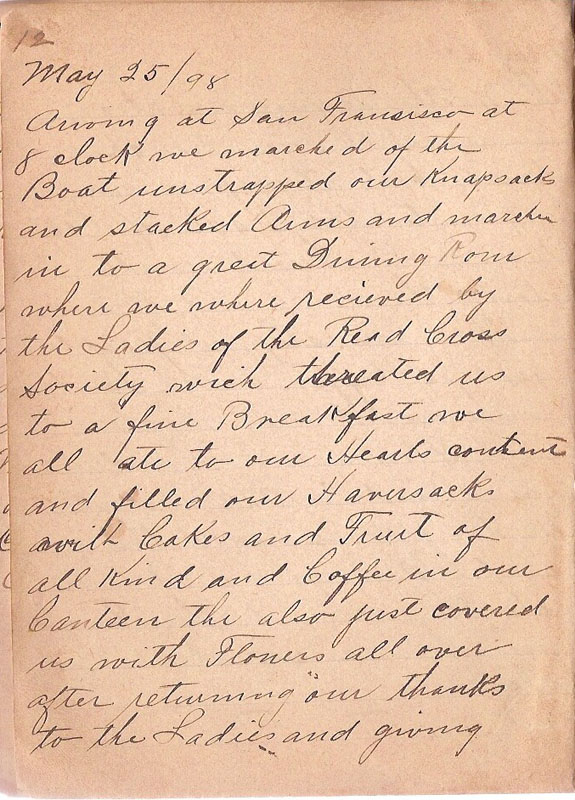 12
May 25/98
Arriving at San Fransisco at
8 clock we marched of the
Boat unstrapped our Knapsacks
and stacked Arms and marched
in to a great Dining Rom
where we where recieved by
the Ladies of the Read Cross
Society wich threated us
to a fine Breakfast we
all ate to our Hearts content
and filled our Haversacks
with Cakes and Fruit of
all Kind and Coffee in our
Canteen the also just covered
us with Flowers all over
after returning our thanks
to the Ladies and giving